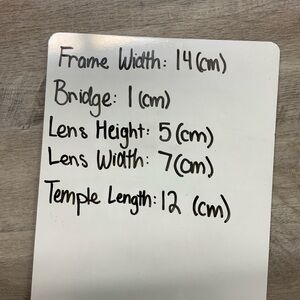 Frame Width: 14 (cm)
Bridge: 1 (cm)
Lens Height: 5 (cm)
Lens Width: 7 (cm)
Temple Length: 12 (cm)